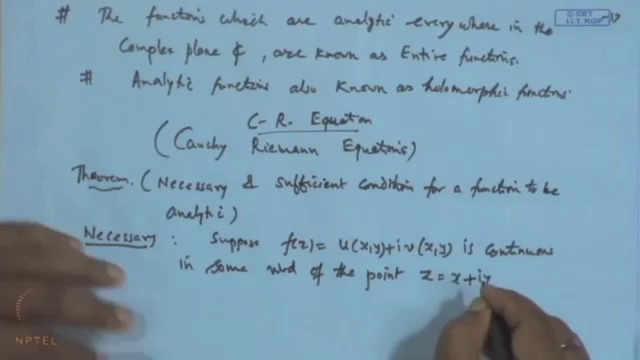 # The functions which are analytic everywhere in the
Complex plane ₵, are known as Entire functions.
# Analytic functions also known as holomorphic functions.
C-R. Equation
(Cauchy Riemann Equations)
Theorem. (Necessary & sufficient condition for a function to be
analytic)
Necessary : Suppose f(z) = u(x,y)+iv(x,y) is continuous
in some nbd of the point z = x+iy
© CET
I.I.T. KGP
NPTEL